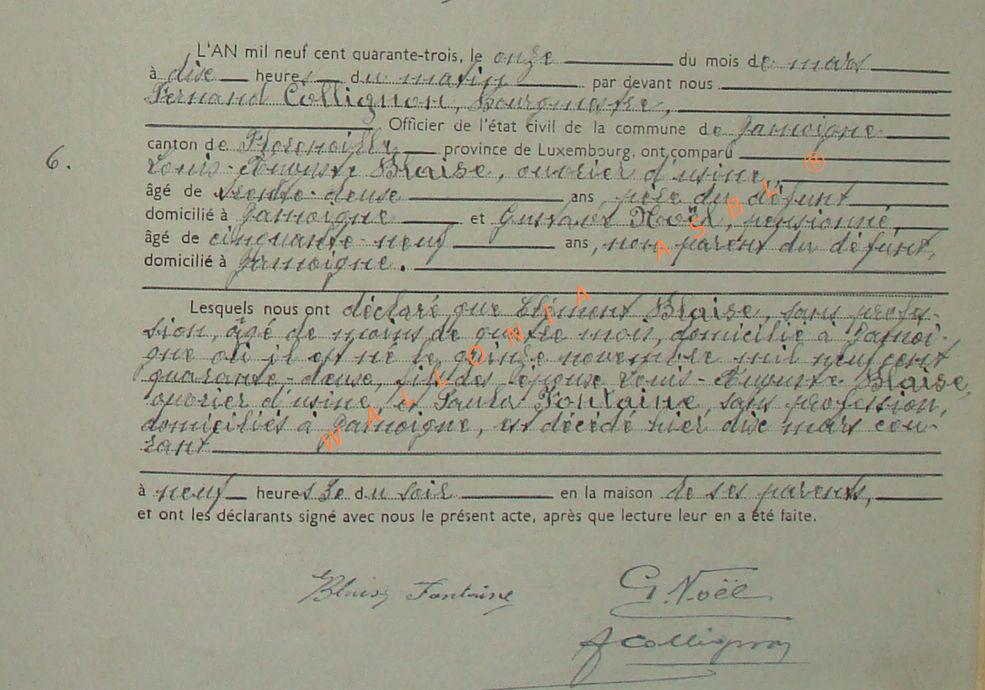 L'AN mil neuf cent quarante-trois, le onze du mois de mars
à dix heures du matin par devant nous
Fernand Collignon, Bourgmestre,
Officier de l'état civil de la commune de Jamoigne
canton de Florenville province de Luxembourg, ont comparu
6.
Louis-Auguste Blaise, ouvrier d'usine,
âgé de trente-deux ans, père du défunt
domicilié à Jamoigne et Gustave Noël, pensionné,
âgé de cinquante-neuf ans, non parent du défunt,
domicilié à Jamoigne.
Lesquels nous ont déclaré que Clément Blaise, sans profes-
sion, âgé de moins de quatre mois, domicilié à Jamoi-
gne où il est né le quinze novembre mil neuf cent
quarante-deux, fils des époux Louis-Auguste Blaise,
ouvrier d'usine, et Laura Fontaine, sans profession,
domiciliés à Jamoigne, est décédé hier dix mars cou-
rant
à neuf heures 30 du soir en la maison de ses parents,
et ont les déclarants signé avec nous le présent acte, après que lecture leur en a été faite.
Blaise Fontaine G. Noël
F Collignon
WALLONIA ASBL ®